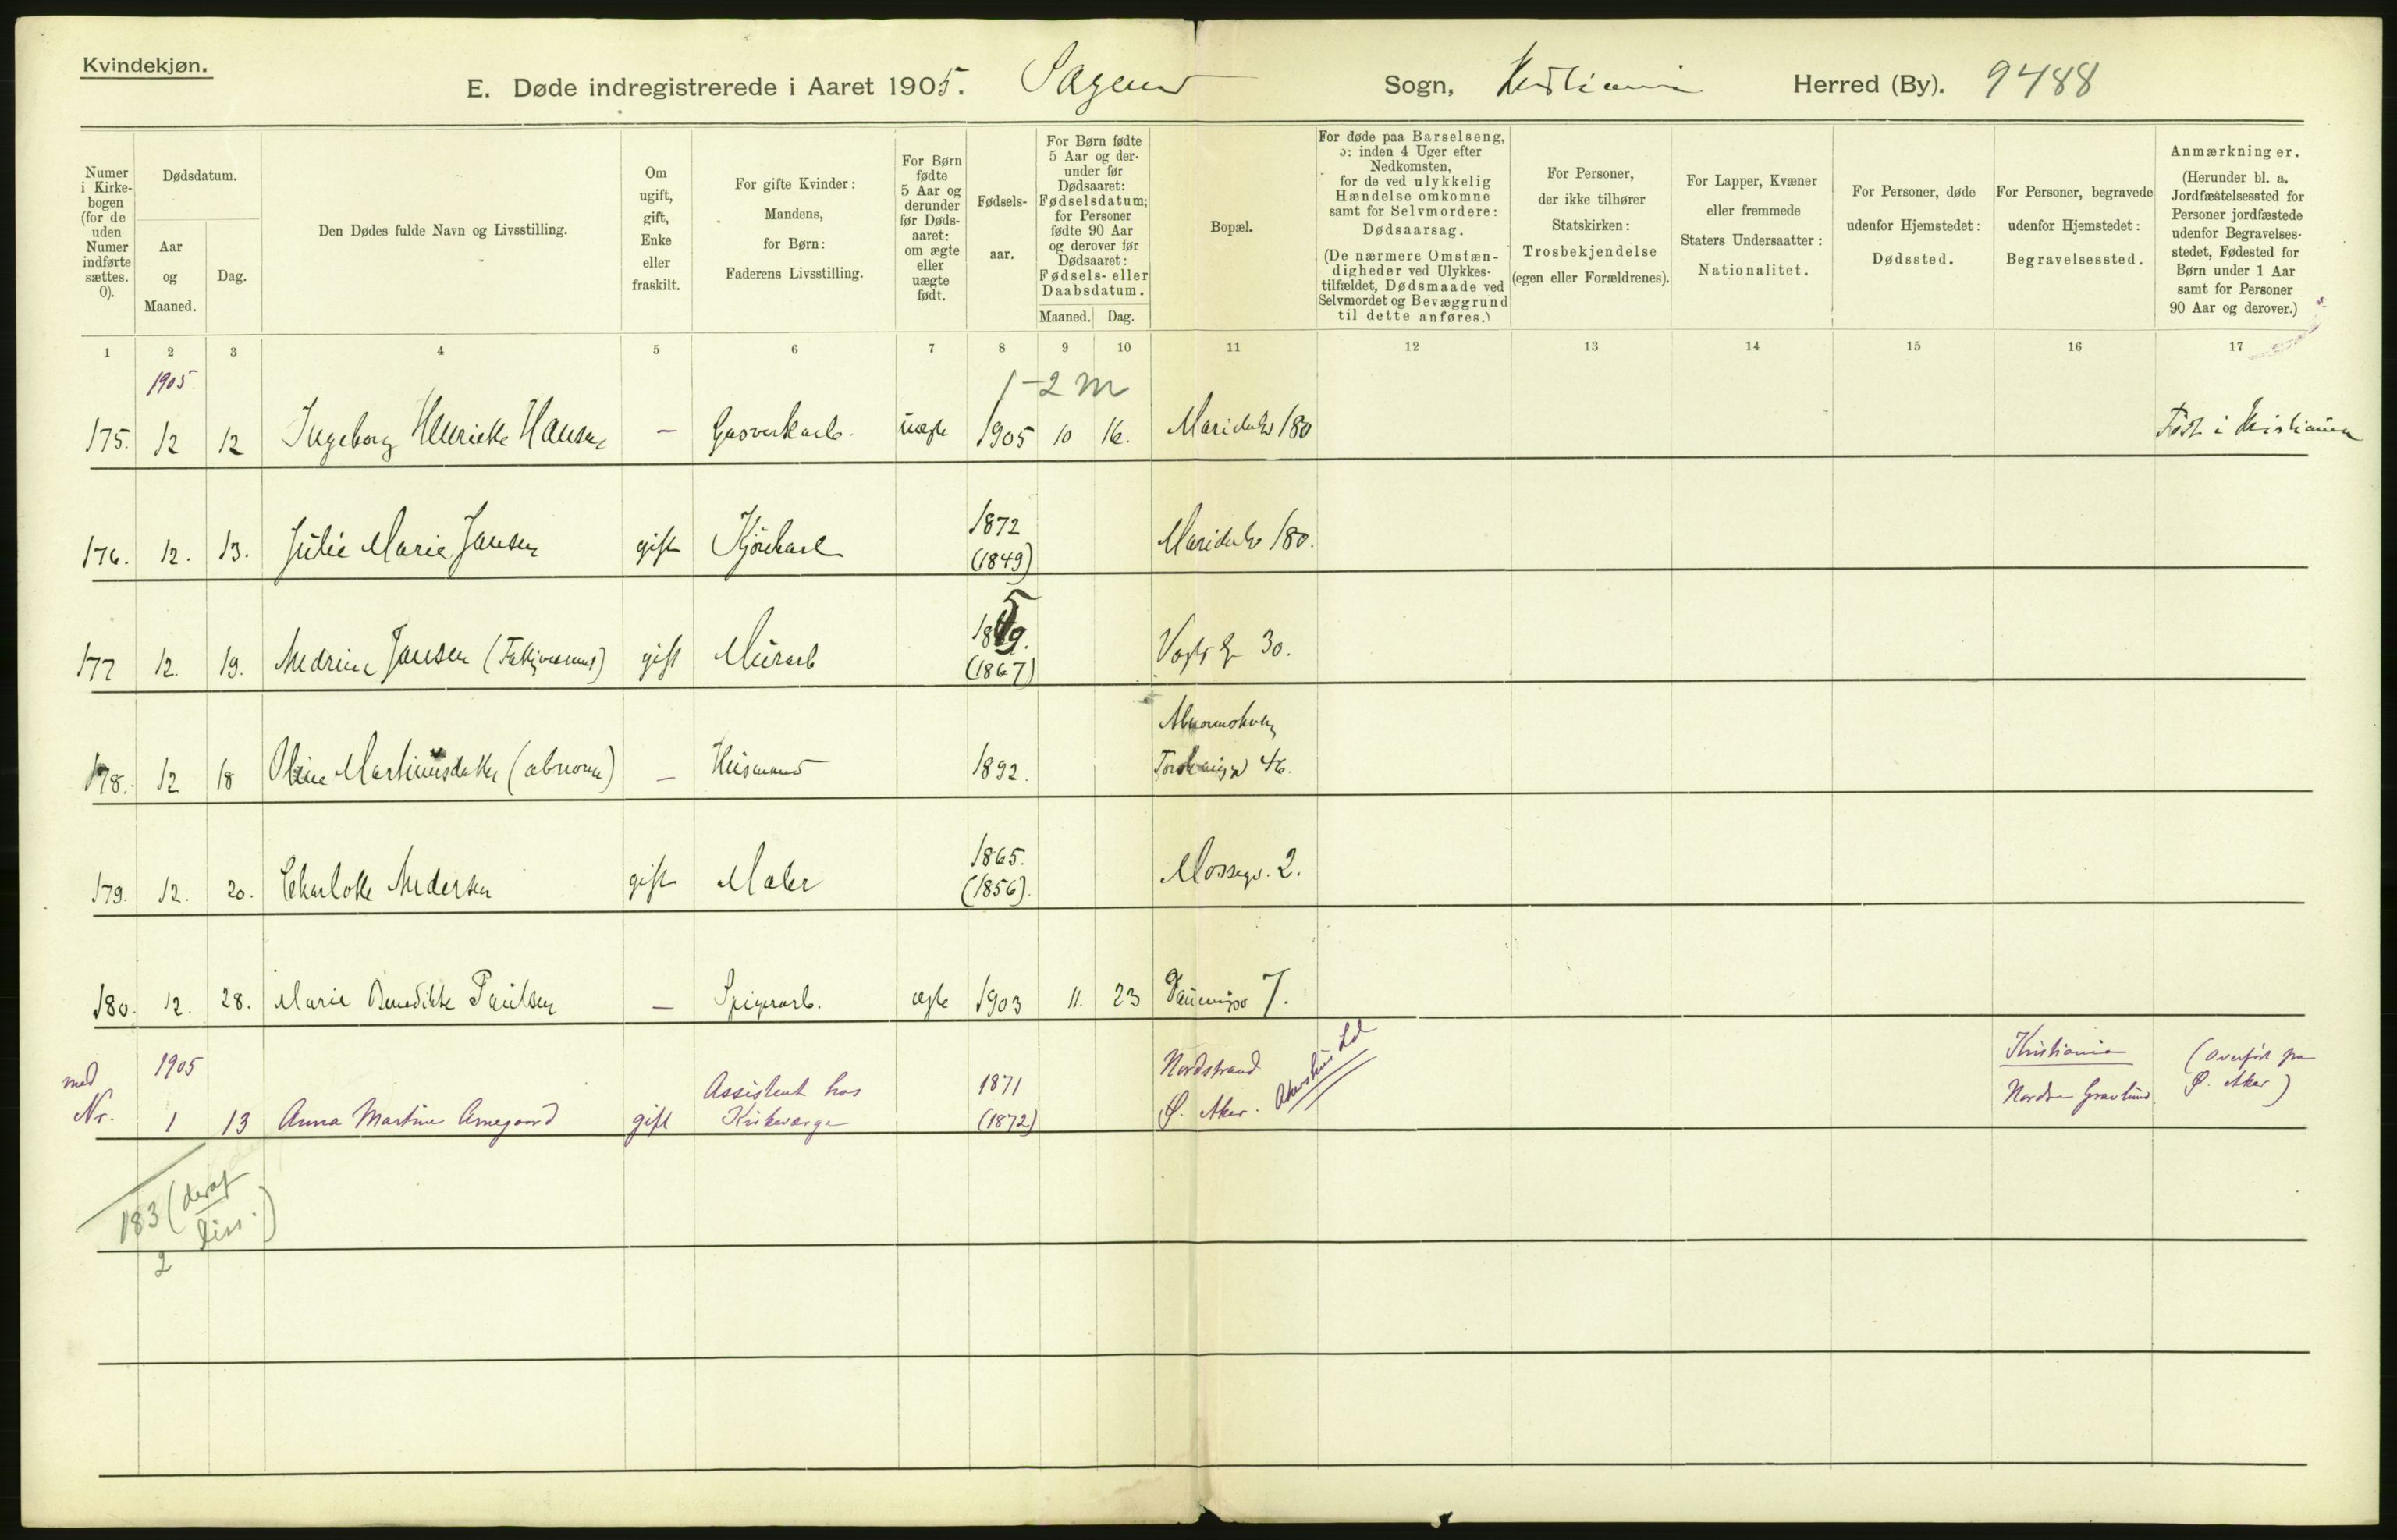 Kvindekjøn.
E. Døde indregistrerede i Aaret 1905. Sagene Sogn, Kristiania Herred (By). 9488
Numer i Kirke-bogen (for de uden Numer indførte sættes. 0).
Dødsdatum.
Aar og Maaned.
Dag.
Den Dødes fulde Navn og Livsstilling.
Om ugift, gift, Enke eller fraskilt.
For gifte Kvinder: Mandens, for Børn: Faderens Livsstilling.
For Børn fødte 5 Aar og derunder før Døds-aaret: om ægte eller uægte født.
Fødsels-aar.
For Børn fødte 5 Aar og der-under før Dødsaaret: Fødselsdatum; for Personer fødte 90 Aar og derover før Dødsaaret: Fødsels- eller Daabsdatum.
Maaned. Dag.
Bopæl.
For døde paa Barselseng, ɔ: inden 4 Uger efter Nedkomsten, for de ved ulykkelig Hændelse omkomne samt for Selvmordere: Dødsaarsag.
(De nærmere Omstæn-digheder ved Ulykkes-tilfældet, Dødsmaade ved Selvmordet og Bevæggrund til dette anføres.)
For Personer, der ikke tilhører Statskirken: Trosbekjendelse (egen eller Forældrenes).
For Lapper, Kvæner eller fremmede Staters Undersaatter: Nationalitet.
For Personer, døde udenfor Hjemstedet: Dødssted.
For Personer, begravede udenfor Hjemstedet: Begravelsessted.
Anmærkninger. (Herunder bl. a. Jordfæstelsessted for Personer jordfæstede udenfor Begravelses-stedet, Fødested for Børn under 1 Aar samt for Personer 90 Aar og derover.)
1 2 3 4 5 6 7 8 9 10 11 12 13 14 15 16 17
1905. 1-2 m
175. 12 12 Ingeborg Henriette Hansen – Gasverkarb. uægte 1905 10 16. Maridalsv 180 Født i Kristiania
1872
176. 12. 13. Julie Marie Jansen gift Kjørekarl (1849) Maridalsv 180.
5
1849.
177 12. 19. Andrine Jansen gift Murarb (1867) Vogts g 30.
Abnormskolen
178. 12 18 Oline Martinusdatter (abnorm) – Husmand 1892. 46.
1865.
179. 12. 20. Charlotte Andersen gift Maler (1856). Mossegd. 2.
180. 12. 28. Marie Benedikte Paulsen – Spigerarb. ægte 1903 11. 23 7.
med 1905 Assistent hos 1871 Nordstrand Akershus Kristiania (Overført fra
Nr. 1 13 Anna Martine Arnegaard gift Kirkeværge (1872) Ø. Aker. Nordre Gravlund Ø. Aker)
183 (deraf
2